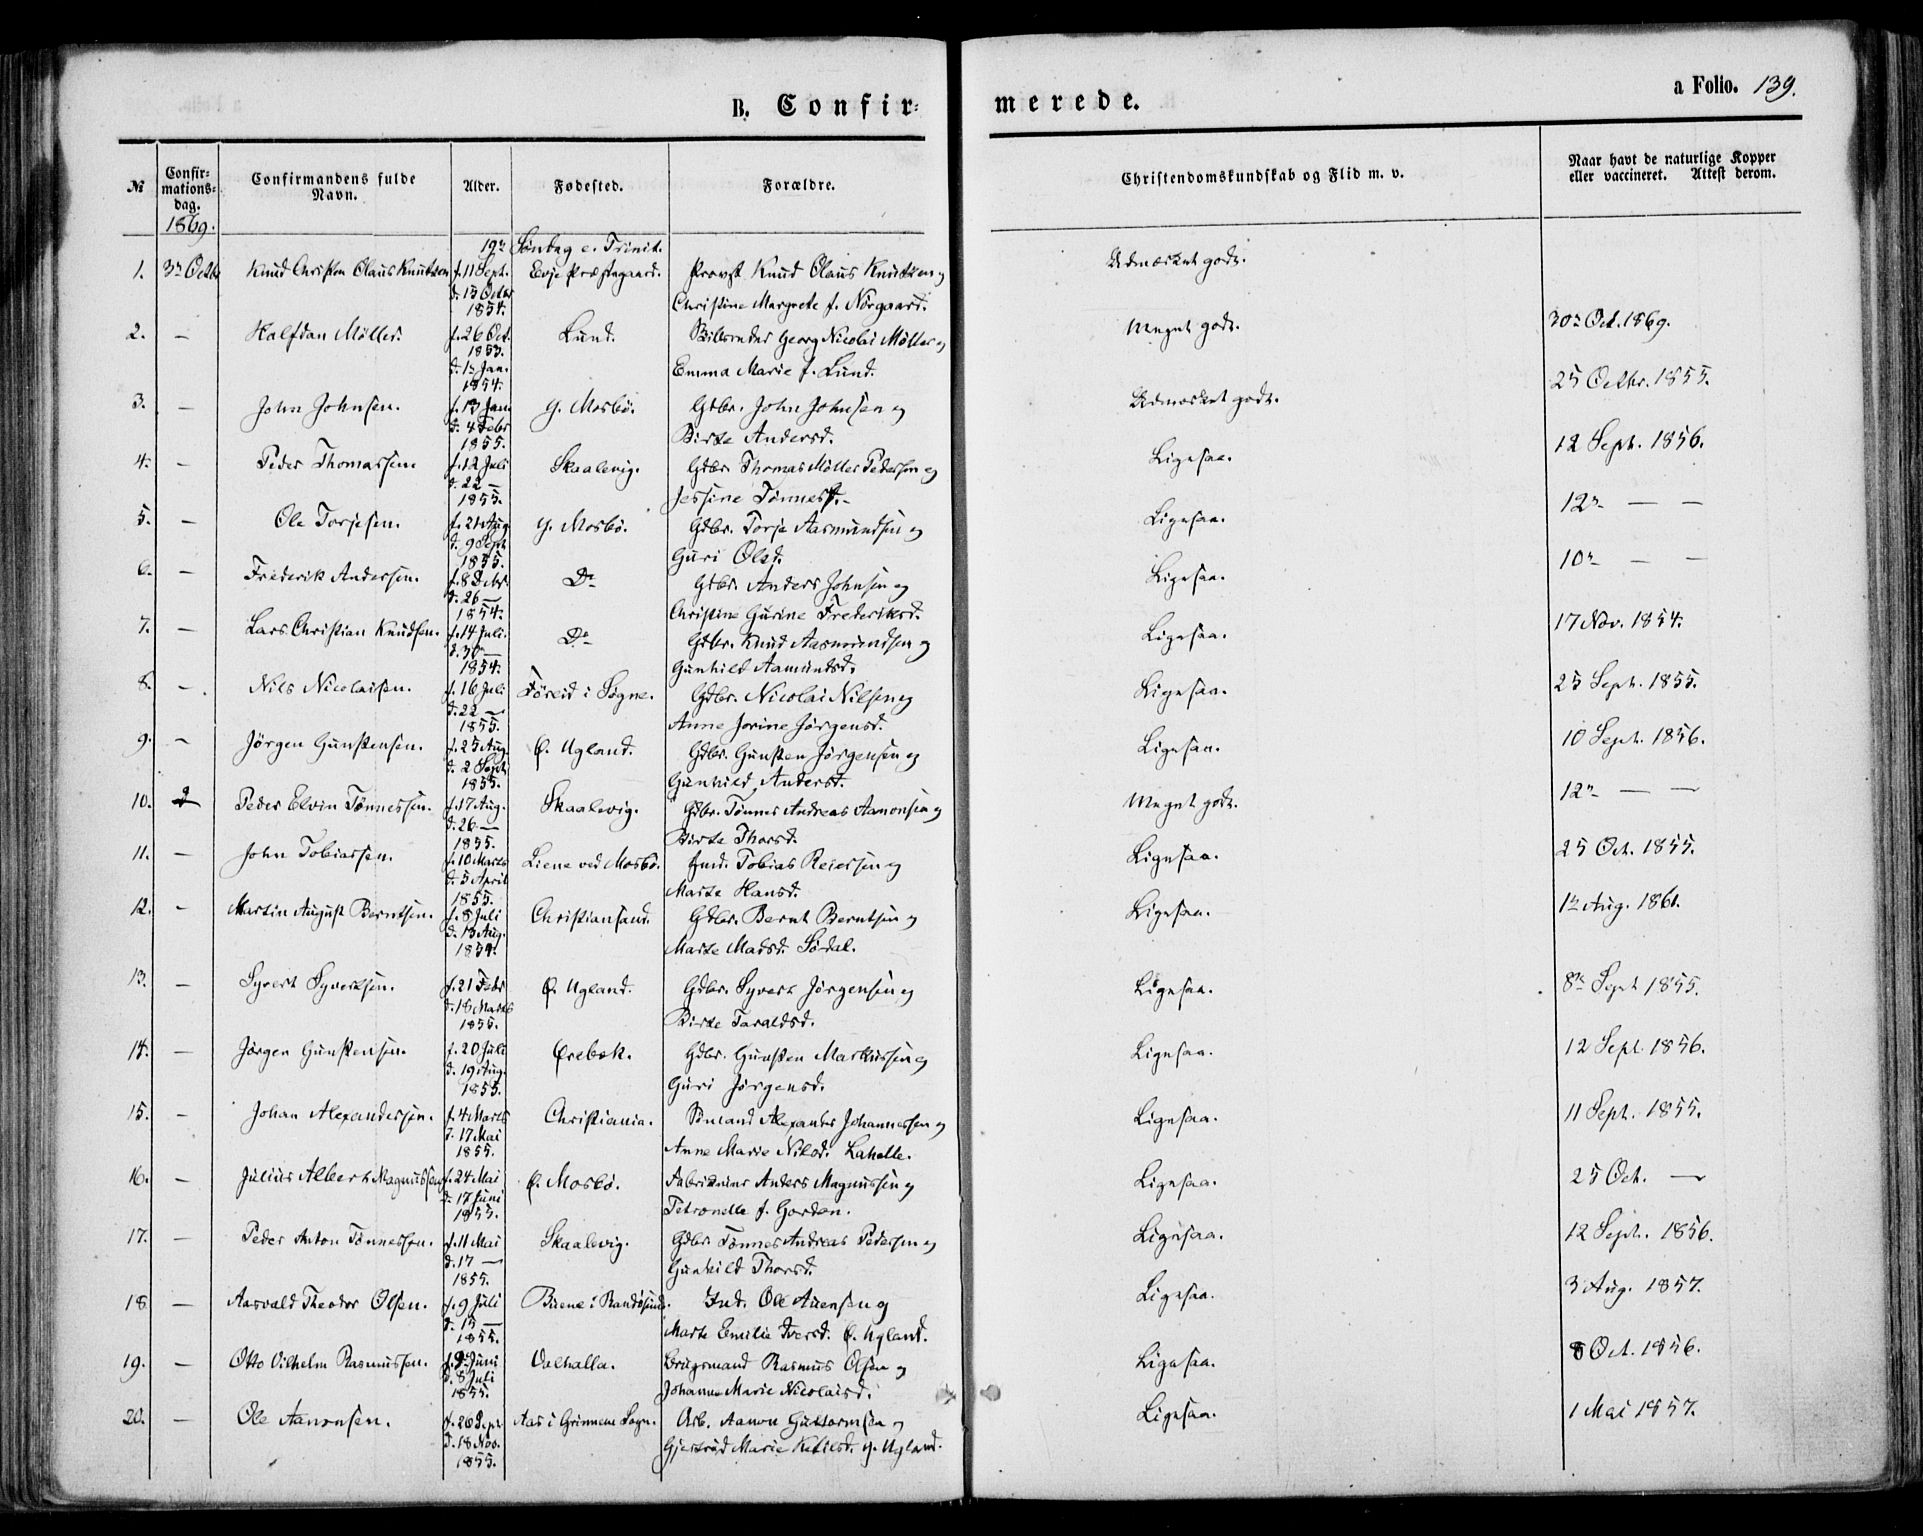 a Folio. 139.
B. Confir=merede.
№ Confir=mations=dag. Confirmandens fulde Navn. Alder. Fødested. Forældre. Christendomskundskab og Flid m. v. Naar havt de naturlige Kopper eller vaccineret. Attest derom.
1869.
19n Søndag e. Trinit.
1. 3n Octbr Knud Christen Olaus Knutzen f. 11 Sept. Evje Præstegaard. Provst Knud Olaus Knutzen og Udmærket godt.
d. 15 Octbr Christine Margrete f. Nørgaard.
1854.
2. — Halfdan Møller. f. 26 Oct. Lund. Georg Nicolai Møller og Meget godt. 30n Oct. 1869.
1853.
d. 1n Jan. Emma Marie f. Lund.
1854. 25 Octbr. 1855.
3. — John Johnsen. f. 13 Jan. y. Mosbø. Gdbr. John Johnsen og Udmærket godt.
d. 4 Febr Birte Andersd.
1855. 12 Sept. 1856.
4. — Peder Thomassen. f. 12 Juli Skaalevig. Gdbr. Thomas Møller Pedersen og Ligesaa.
d. 22 — Jessine Tønnesd.
1855. 12n — —
5. — Ole Torjesen. f. 21 Aug. y. Mosbø. Gdbr. Torje Aasmundsen og Ligesaa.
d. 9 Sept Guri Olsd.
1855. 10n — —
6. — Frederik Andersen. f. 8 Octbr. Do Gdbr. Anders Johnsen og Ligesaa.
d. 26 — Christine Gurine Frederiksd.
1854. 17 Nov. 1854.
7. — Lars Christian Knudsen. f. 14 Juli. Do Gdbr. Knud Aasmundsen og Ligesaa.
d. 30 — Gunhild Aamundsd.
1854.
8. — Nils Nicolaisen. f. 16 Juli Føreid i Søgne. Gdbr. Nicolai Nilsen og Ligesaa. 25 Sept. 1855.
d. 22 — Anne Jorine Jørgensd.
1855.
9. — Jørgen Gunstensen. f. 25 Aug. Ø. Ugland. Gdbr. Gunsten Jørgensen og Ligesaa. 10 Sept. 1856.
d. 2 Sept Gunhild Andersd.
1855.
10. Peder Elvin Tønnessen. f. 17 Aug. Skaalevig. Gdbr. Tønnes Andreas Aanonsen og Meget godt. 12n — —
d. 26 — Birte Thorsd.
1855.
11. — John Tobiassen. f. 10 Marts Liene ved Mosbø. Ind. Tobias Reiersen og Ligesaa. 25 Oct. 1855.
d. 5 April Marte Hansd.
1855.
12. — Martin August Berntsen. f. 8 Juli Christiansand. Gdbr. Bernt Berntsen og Ligesaa. 1n Aug. 1861.
d. 13 Aug. Marte Madsd. Sødal.
1854.
13. — Syvert Syvertsen. f. 21 Febr Ø. Ugland. Gdbr. Syvert Jørgensen og Ligesaa. 8n Sept 1855.
d. 18 Marts Birte Taraldsd.
1855.
14. — Jørgen Gunstensen. f. 20 Juli Ørebæk. Gdbr. Gunsten Markussen og Ligesaa. 12 Sept. 1856.
d. 19 Aug. Guri Jørgensd.
1855.
15. — Johan Alexandersen. f. 4 Marts Christiania. Sømand Alexander Johannessen og Ligesaa. 11 Sept. 1855.
d. 17 Mai Anne Marie Nilsd. Lahelle.
1855.
16. — Julius Albert Magnussen f. 24 Mai Ø. Mosbø. Anders Magnussen og Ligesaa. 25 Oct. —
d. 17 Juni Petronelle f. Gordon.
1855.
17. — Peder Anton Tønnessen. f. 11 Mai Skaalevig. Gdbr Tønnes Andreas Pedersen og Ligesaa. 12 Sept. 1856.
d. 17 — Gunhild Thorsd.
1855.
18 — Aasvald Theodor Olsen. f. 9 Juli Buene i Randøsund. Ind. Ole Auensen og Ligesaa. 3 Aug. 1857.
d. 15 — Marte Emilie Iversd. Ø. Ugland.
1855.
19. — Otto Vilhelm Rasmussen. f. 9 Juni Valhalla. Brugsmand Rasmus Olsen og Ligesaa. 8 Oct. 1856.
d. 8 Juli Johanne Marie Nicolaisd.
1855.
20. — Ole Aanonsen. f. 26 Sept Aas i Grimnene Sogn. Arb. Aanon Guttormsen og Ligesaa. 1 Mai 1857.
d. 18 Nov. Gjertrud Marie Ketilsd. y. Ugland.
1855.